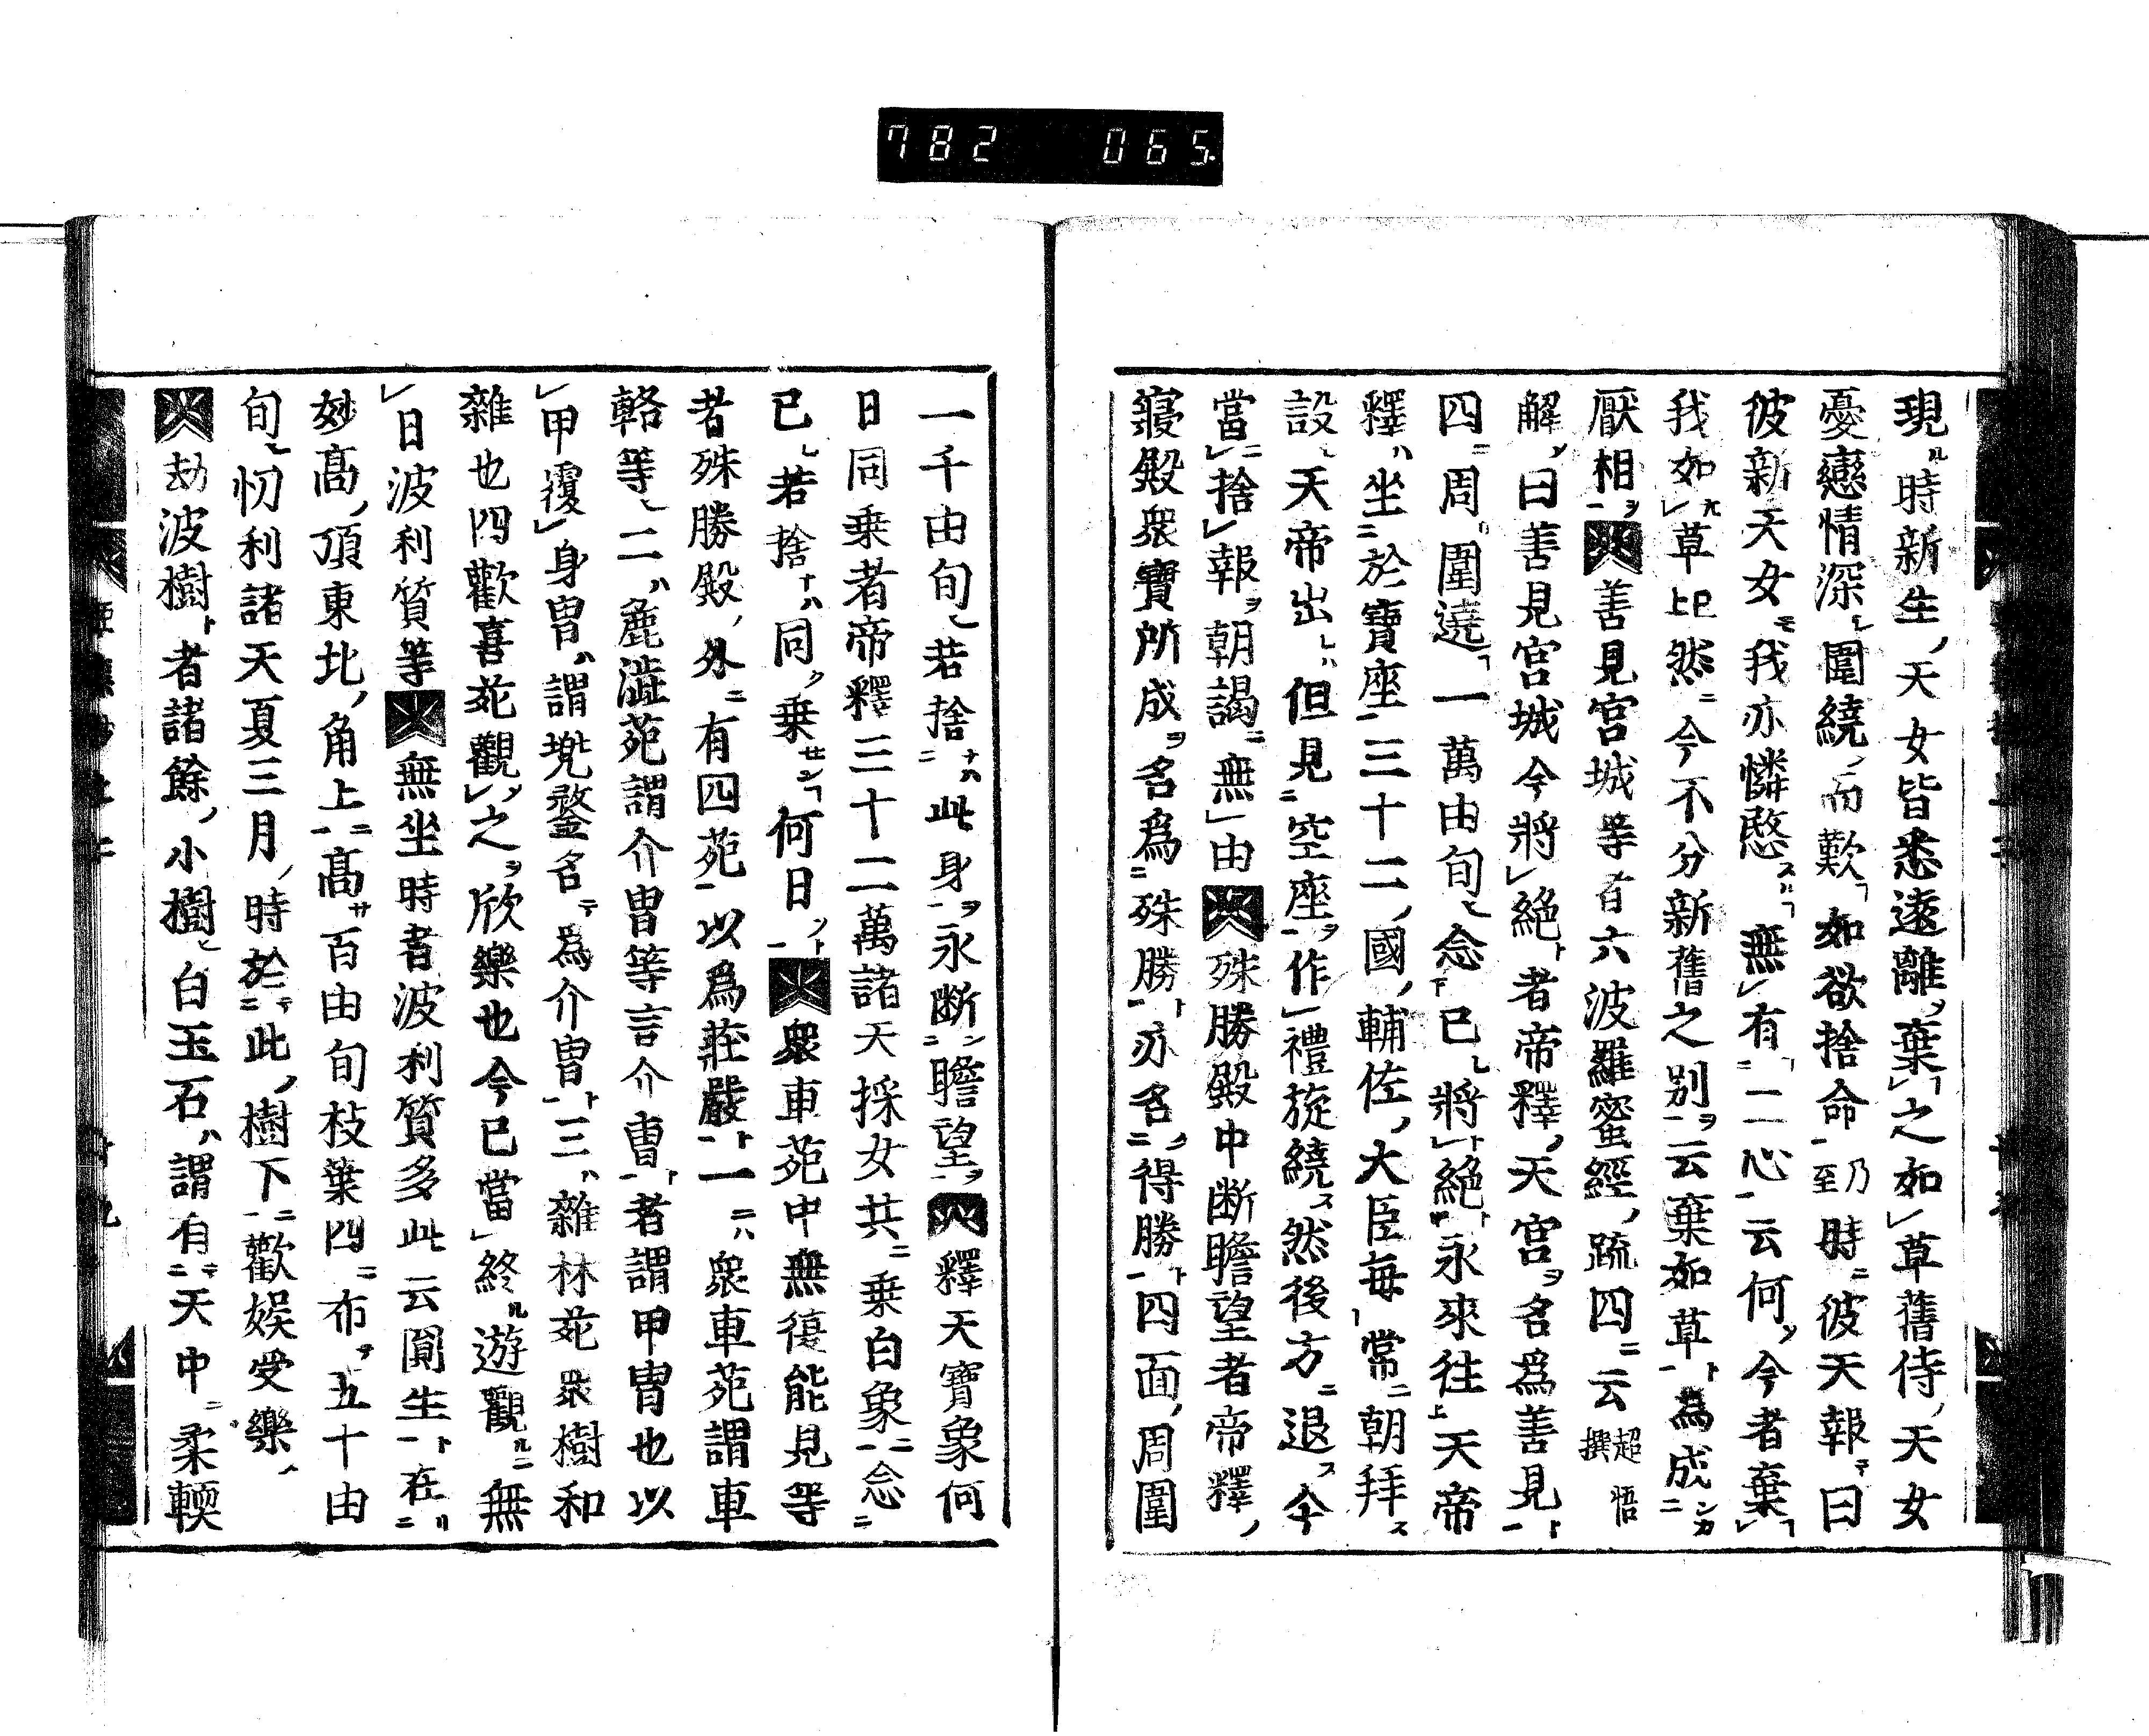 782 065
現ル時新生天女皆悉遠離ヲ棄之如草舊侍天女
憂戀情深圍繞而歎如欲捨命乃至時彼天報曰
彼新天女モ我亦憐愍スハ無有二心云何ソ今者棄
我如草上已然今不分新舊之別ヲ云棄如草ト為成ンカ
厭相ヲ善見宮城等者六波羅蜜經疏四云超悟撰
解ノ曰善見宮城今將絕ト者帝釋天宮ヲ名為善見ト
四周圍遶一萬由旬念已將絕永來往天帝
釋ハ坐於寶座三十二國輔佐大臣每常朝拜ス
設天帝出レハ但見空座ヲ作禮旋繞ス然後方退ス今
當捨報ヲ朝謁無由殊勝殿中斷瞻望者帝釋
寢殿衆寶所成ヲ名為殊勝ト亦名得勝ト四面周圍
一千由旬若捨ナハ此身ヲ永斷瞻望ヲ釋天寶象何
日同乘者帝釋三十二萬諸天採女共乘白象念
已若捨ナハ同ク乘センコ何日ノト衆車苑中無復能見等
者殊勝殿外有四苑以為莊嚴ト一ニハ衆車苑謂車
輅等二ハ麁澁苑謂介冑等言介冑ト者謂甲冑也以
甲覆身冑ハ謂兜鍪名テ為介冑ト三ハ雜林苑衆樹和
雜也四歡喜苑觀之ヲ欣樂也今已當終ル遊觀ルニ無
日波利質等無坐時者波利質多此云圓生ト在リ
妙高頂東北角上高サ百由旬枝葉四布ヲ五十由
旬忉利諸天夏三月時於テ此樹下歡娛受樂
劫波樹ト者諸餘小樹白玉石ハ謂有テ天中柔輭